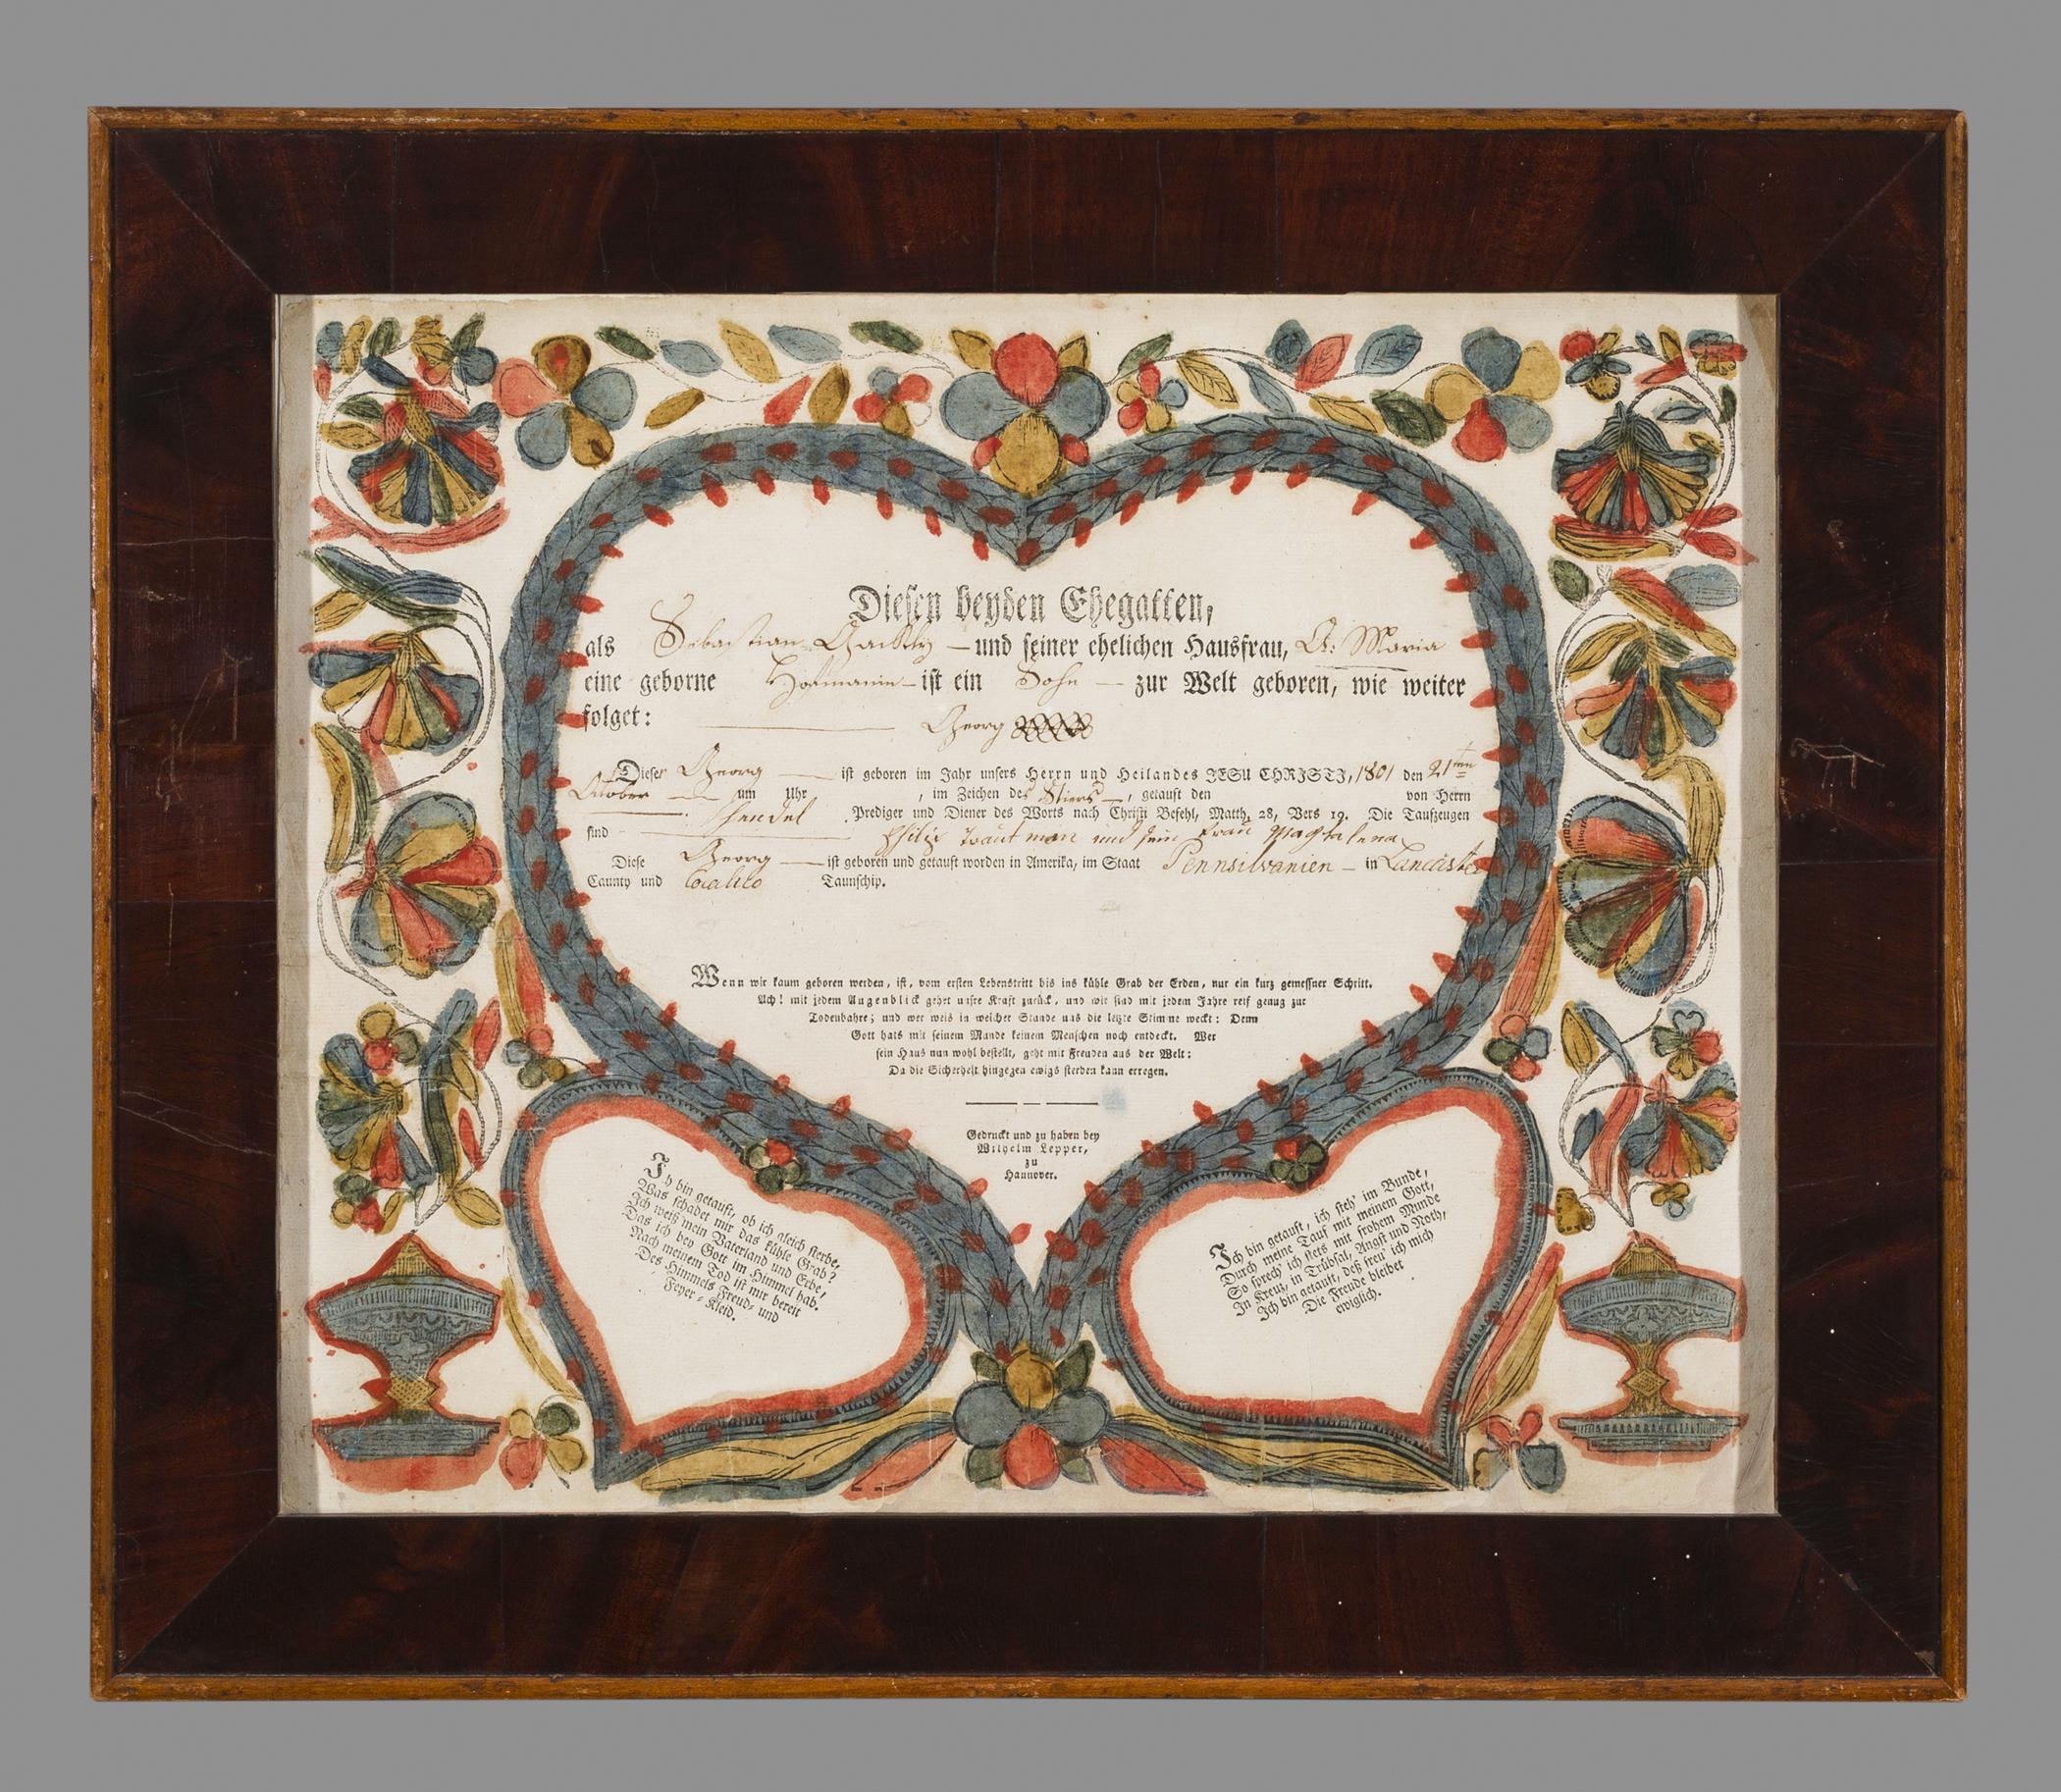 Diesen beyden Ehegatten,
als Sebastian — und seiner ehelichen Hausfrau, A: Maria
eine geborne Hofmanin — ist ein Sohn — zur Welt geboren, wie weiter
folget: Georg
Dieser Georg — ist geboren im Jahr unsers Herrn und Heilandes JESU CHRISTI, 1801 den 21ten
October — um Uhr , im Zeichen des Stiers —, getauft den von Herrn
Schendel . Prediger und Diener des Worts nach Christi Befehl, Matth. 28, Vers 19. Die Taufzeugen
sind Philip Trautman und sein Frau Magdalena
Diese Georg — ist geboren und getauft worden in Amerika, im Staat Pennsilvanien — in Lancaster
Caunty und Cocalico Taunschip.
Wenn wir kaum geboren werden, ist, vom ersten Lebenstritt bis ins kühle Grab der Erden, nur ein kurz gemessner Schritt.
Ach! mit jedem Augenblick gehet unsre Kraft zurück, und wir sind mit jedem Jahre reif genug zur
Todenbahre; und wer weis in welcher Stunde uns die letzte Stimme weckt: Denn
Gott hats mit seinem Munde keinem Menschen noch entdeckt. Wer
sein Haus nun wohl bestellt, geht mit Freuden aus der Welt:
Da die Sicherheit hingegen ewigs sterben kann erregen.
Gedruckt und zu haben bey
Wilhelm Lepper,
zu
Hannover.
Ich bin getauft, ob ich gleich sterbe,
Was schadet mir das kühle Grab?
Ich weiß mein Vaterland und Erbe,
Das ich bey Gott im Himmel hab.
Nach meinem Tod ist mir bereit
Des Himmels Freud- und
Feyer-Kleid.
Ich bin getauft, ich steh' im Bunde,
Durch meine Tauf mit meinem Gott,
So sprech' ich stets mit frohem Munde
In Kreuz, in Trübsal, Angst und Noth,
Ich bin getauft, deß freu' ich mich
Die Freude bleibet
ewiglich.